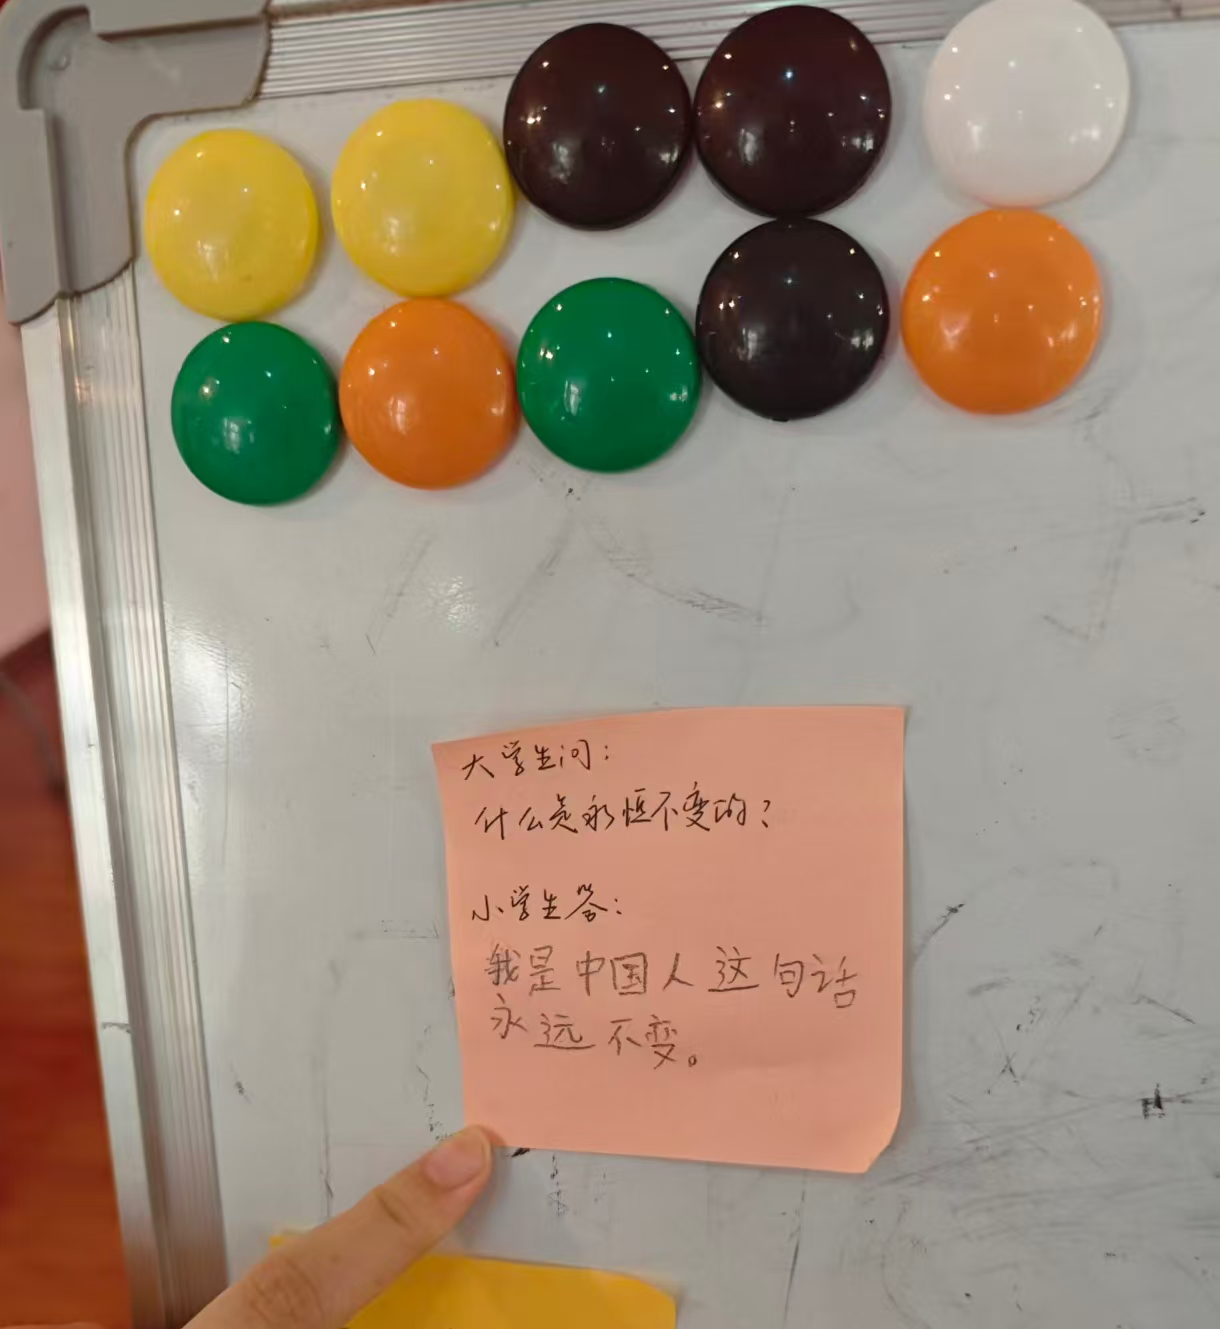 大学生问：
什么是永恒不变的？
小学生答：
我是中国人这句话
永远不变。